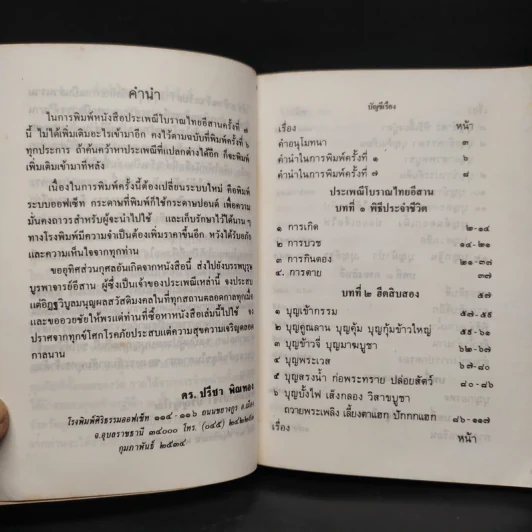 คำนำ
ในการพิมพ์หนังสือประเพณีโบราณไทยอีสานครั้งที่ ๗
นี้ ไม่ได้เพิ่มเติมอะไรเข้ามาอีก คงไว้ตามฉบับที่พิมพ์ครั้งที่ ๖
ทุกประการ ถ้าค้นคว้าหาประเพณีที่แปลกต่างได้อีก ก็จะพิมพ์
เพิ่มเติมเข้ามาทีหลัง
เนื่องในการพิมพ์ครั้งนี้ต้องเปลี่ยนระบบใหม่ คือพิมพ์
ระบบออฟเซ็ท กระดาษที่พิมพ์ก็ใช้กระดาษปอนด์ เพื่อความ
มั่นคงถาวรสำหรับผู้จะนำไปใช้ และเก็บรักษาไว้ได้นาน ๆ
ทางโรงพิมพ์มีความจำเป็นต้องเพิ่มราคาขึ้นอีก หวังได้รับอภัย
และความเห็นใจจากทุกท่าน
ขออุทิศส่วนกุศลอันเกิดจากหนังสือนี้ ส่งไปยังบรรพบุรุษ
บูรพาจารย์อีสาน ผู้ซึ่งเป็นเจ้าของประเพณีเหล่านี้ จงประสบ
แต่อิฏฐวิบูลมนุญผลสวัสดิมงคลในที่ทุกสถานตลอดกาลทุกเมื่อ
และขออวยชัยให้พรแด่ท่านที่ซื้อหาหนังสือเล่มนี้ไปใช้ จง
ปราศจากทุกข์โศกโรคภัยประสบแต่ความสุขความเจริญตลอด
กาลนาน
ดร. ปรีชา พิณทอง
โรงพิมพ์ศิริธรรมออฟเซ็ท ๑๑๔-๑๑๖ ถนนชยางกูร อ.เมือง
จ.อุบลราชธานี ๓๔๐๐๐ โทร. (๐๔๕)
กุมภาพันธ์ ๒๕๓๔
บัญชีเรื่อง
เรื่อง หน้า
คำอนุโมทนา ๓
คำนำในการพิมพ์ครั้งที่ ๑ ๖
คำนำในการพิมพ์ครั้งที่ ๗ ๘
ประเพณีโบราณไทยอีสาน
บทที่ ๑ พิธีประจำชีวิต
๑ การเกิด ๒-๑๔
๒ การบวช ๑๔-๒๑
๓ การกินดอง ๒๑-๓๗
๔ การตาย ๓๗
บทที่ ๒ ฮีตสิบสอง ๕๗
๑ บุญเข้ากรรม ๕๗-๕๙
๒ บุญคูณลาน บุญคุ้ม บุญกุ้มข้าวใหญ่ ๕๙-๖๑
๓ บุญข้าวจี่ บุญมาฆบูชา ๖๒-๖๗
๔ บุญพระเวส ๖๗-๘๐
๕ บุญสรงน้ำ ก่อพระทราย ปล่อยสัตว์ ๘๐-๘๖
๖ บุญบั้งไฟ เส็งกลอง วิสาขบูชา
ถวายพระเพลิง เลี้ยงตาแฮก ปักกกแฮก ๘๖-๑๑๗
เรื่อง หน้า